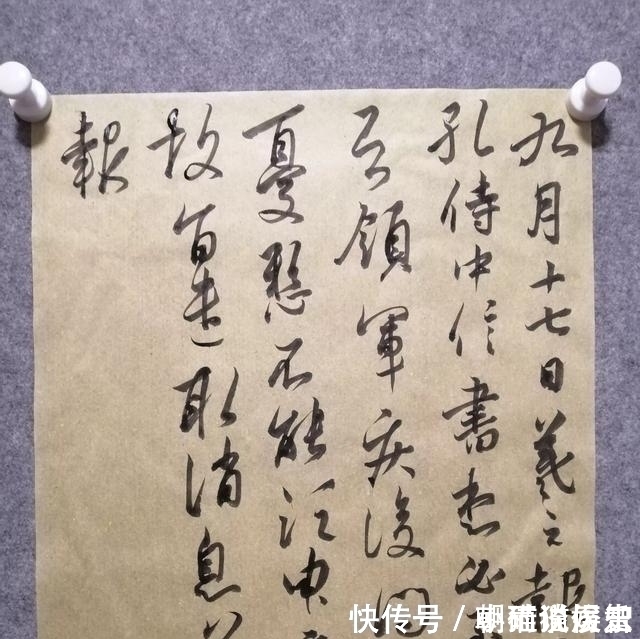 九月十七日羲之報
孔侍中信書想必
云領軍疾後問
憂懸不能須申
故旨遣取消息
報
快传号 /